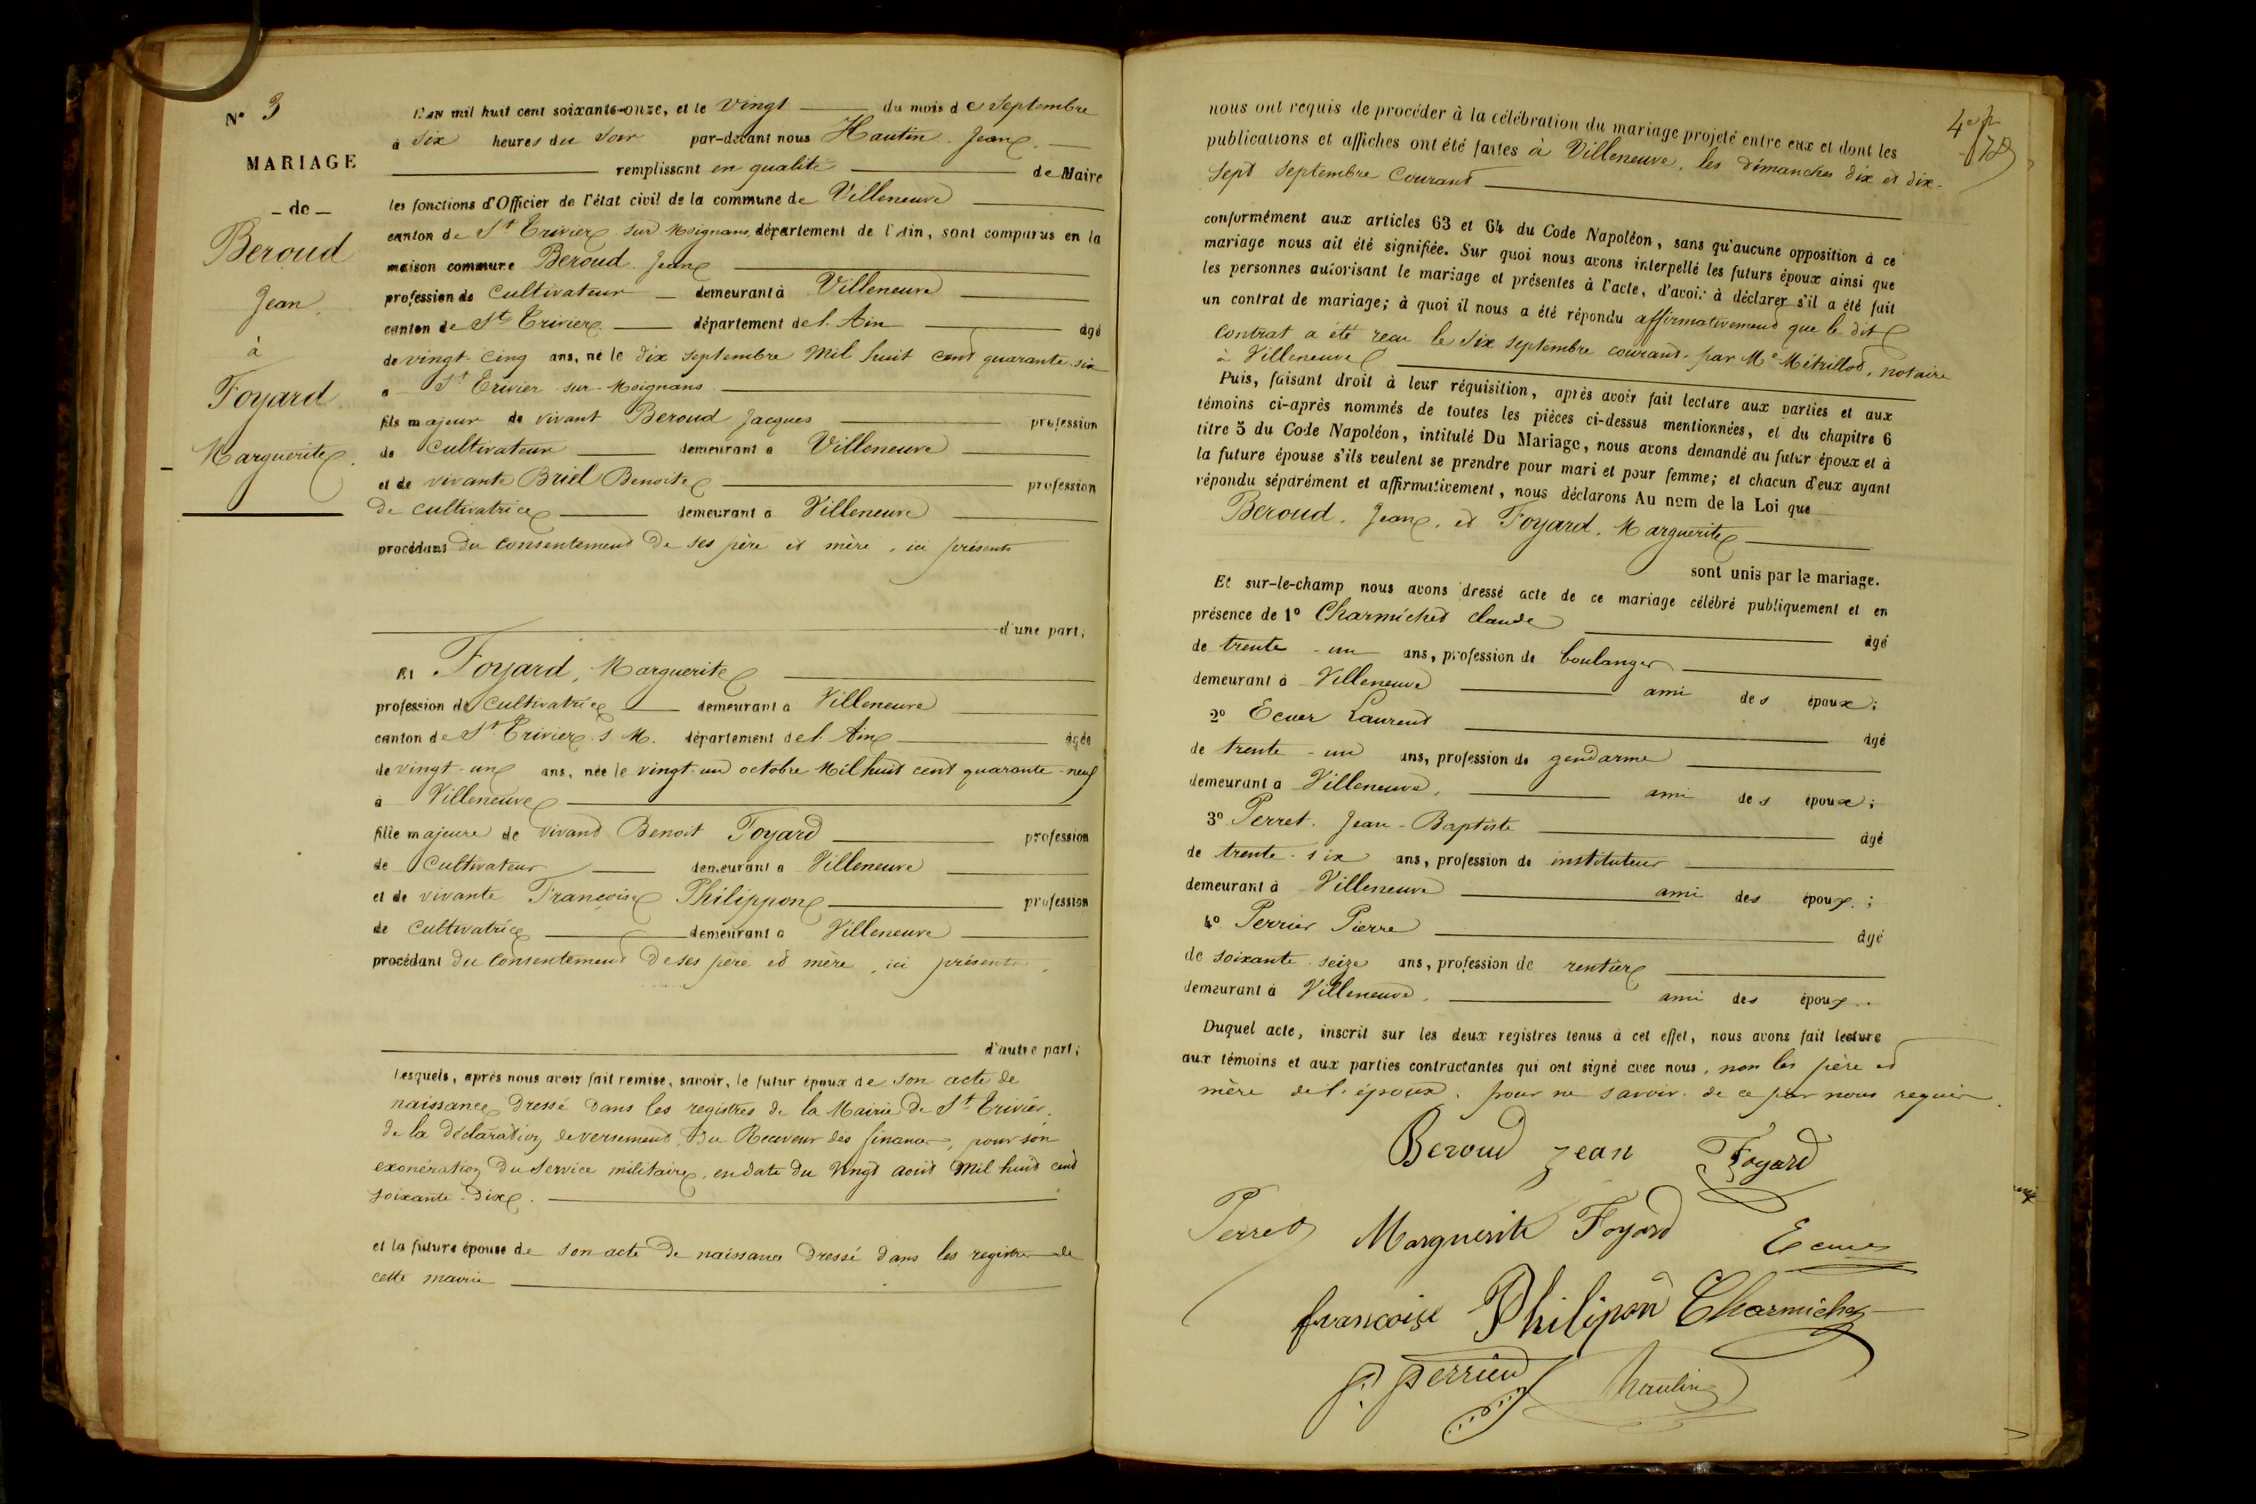 N° 3
MARIAGE
- de -
Beroud
Jean
à
Foyard
Marguerite
L'an mil huit cent soixante-onze, et le vingt du mois de Septembre
à six heures du soir par-devant nous Hautin Jean
remplissant en qualité de Maire
les fonctions d'Officier de l'état civil de la commune de Villeneuve
canton de St Trivier sur Moignans, département de l'Ain, sont comparus en la
maison commune Beroud Jean
profession de cultivateur demeurant à Villeneuve
canton de St Trivier département de l'Ain âgé
de vingt-cinq ans, né le dix septembre Mil huit cent quarante-six
à St Trivier sur Moignans
fils majeur de vivant Beroud Jacques profession
de cultivateur demeurant à Villeneuve
et de vivante Briel Benoite profession
de cultivatrice demeurant à Villeneuve
procédant du consentement de ses père et mère, ici présents
d'une part;
Et Foyard, Marguerite
profession de cultivatrice demeurant à Villeneuve
canton de St Trivier s. M. département de l'Ain âgée
de vingt-un ans, née le vingt-un octobre Mil huit cent quarante-neuf
à Villeneuve
fille majeure de vivant Benoit Foyard profession
de cultivateur demeurant à Villeneuve
et de vivante Françoise Philippon profession
de cultivatrice demeurant à Villeneuve
procédant du consentement de ses père et mère, ici présents.
d'autre part;
Lesquels, après nous avoir fait remise, savoir, le futur époux de son acte de
naissance dressé dans les registres de la Mairie de St Trivier.
de la déclaration de versement du Receveur des finances, pour son
exonération du service militaire, en date du vingt août Mil huit cent
soixante-dix.
et la future épouse de son acte de naissance dressé dans les registres de
cette mairie
4e f
nous ont requis de procéder à la célébration du mariage projeté entre eux et dont les
publications et affiches ont été faites à Villeneuve, les dimanches dix et dix-
sept septembre courant
conformément aux articles 63 et 64 du Code Napoléon, sans qu'aucune opposition à ce
mariage nous ait été signifiée. Sur quoi nous avons interpellé les futurs époux ainsi que
les personnes autorisant le mariage et présentes à l'acte, d'avoir à déclarer s'il a été fait
un contrat de mariage; à quoi il nous a été répondu affirmativement que le dit
contrat a été reçu le six septembre courant par Me Métrillot, notaire
à Villeneuve
Puis, faisant droit à leur réquisition, après avoir fait lecture aux parties et aux
témoins ci-après nommés de toutes les pièces ci-dessus mentionnées, et du chapitre 6
titre 5 du Code Napoléon, intitulé Du Mariage, nous avons demandé au futur époux et à
la future épouse s'ils veulent se prendre pour mari et pour femme; et chacun d'eux ayant
répondu séparément et affirmativement, nous déclarons Au nom de la Loi que
Beroud, Jean, et Foyard, Marguerite
sont unis par le mariage.
Et sur-le-champ nous avons dressé acte de ce mariage célébré publiquement et en
présence de 1° Charmichet claude âgé
de trente-un ans, profession de boulanger
demeurant à Villeneuve ami des époux;
2° Ecuer Laurent âgé
de trente-un ans, profession de gendarme
demeurant à Villeneuve, ami des époux;
3° Perret Jean-Baptiste âgé
de trente-six ans, profession de instituteur
demeurant à Villeneuve ami des époux;
4° Perrier Pierre âgé
de soixante-seize ans, profession de rentier
demeurant à Villeneuve, ami des époux.
Duquel acte, inscrit sur les deux registres tenus à cet effet, nous avons fait lecture
aux témoins et aux parties contractantes qui ont signé avec nous, non les père et
mère de l'époux, pour ne savoir de ce par nous requis.
Beroud jean Foyard
Perret Marguerite Foyard Ecuer
françoise Philipon Charmichet
P. perrier Hautin